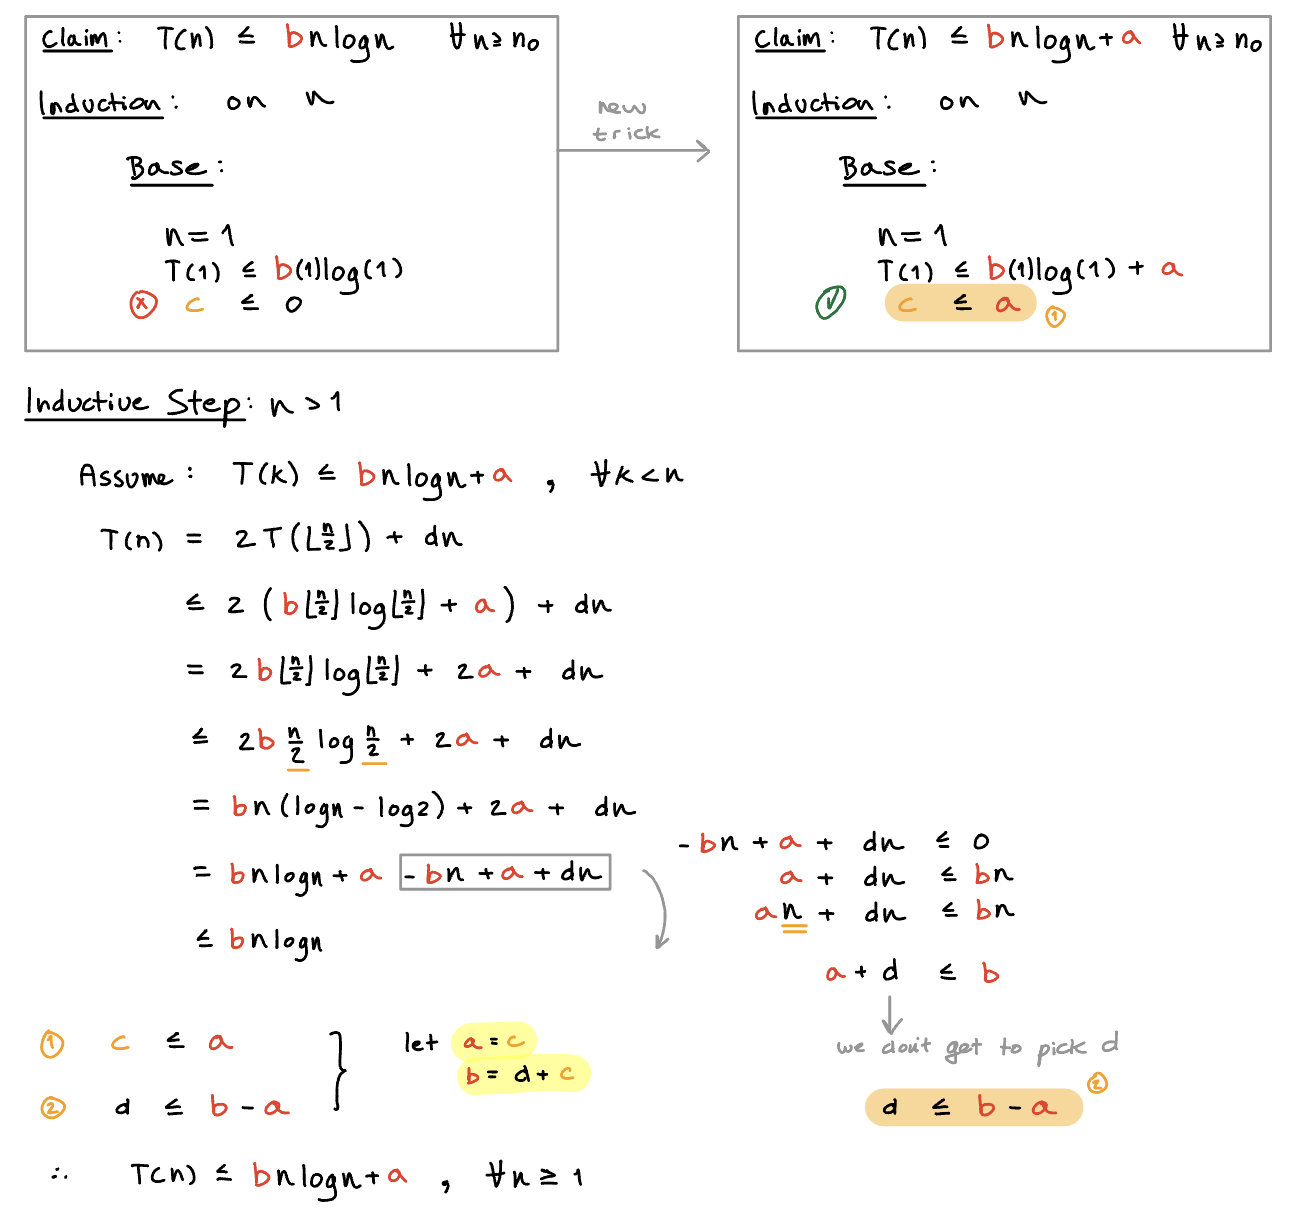 Claim: T(n) ≤ bnlogn ∀n≥n₀
Induction: on n
Base:
n=1
T(1) ≤ b(1)log(1)
ⓧ c ≤ 0
new
trick
Claim: T(n) ≤ bnlogn+a ∀n≥n₀
Induction: on n
Base:
n=1
T(1) ≤ b(1)log(1) + a
✓ c ≤ a ①
Inductive Step: n>1
Assume: T(k) ≤ bnlogn+a , ∀k<n
T(n) = 2T(⌊n/2⌋) + dn
≤ 2(b⌊n/2⌋log⌊n/2⌋ + a) + dn
= 2b⌊n/2⌋log⌊n/2⌋ + 2a + dn
≤ 2b n/2 log n/2 + 2a + dn
= bn(logn - log2) + 2a + dn
= bnlogn + a -bn +a + dn
≤ bnlogn
-bn + a + dn ≤ 0
a + dn ≤ bn
an + dn ≤ bn
a + d ≤ b
we don't get to pick d
d ≤ b - a ②
① c ≤ a
② d ≤ b - a
let a = c
b = d + c
∴ T(n) ≤ bnlogn+a , ∀n≥1